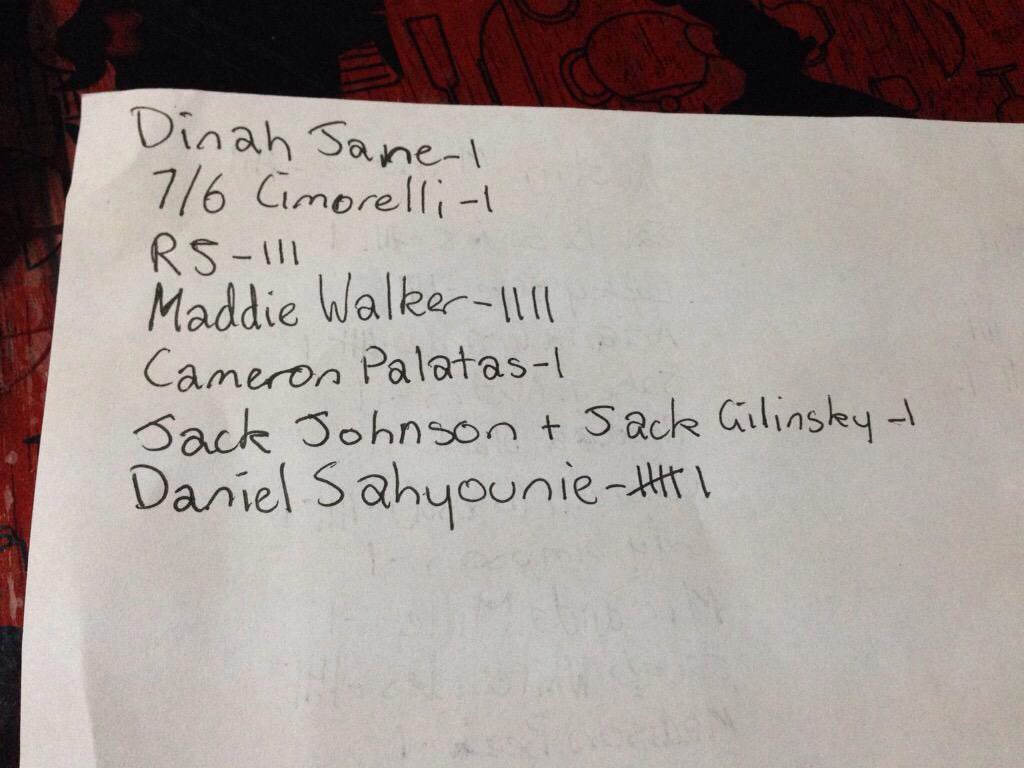 Dinah Jane-1
7/6 Cimorelli-1
R5-111
Maddie Walker-1111
Cameron Palatas-1
Jack Johnson + Jack Gilinsky-1
Daniel Sahyounie-卌1